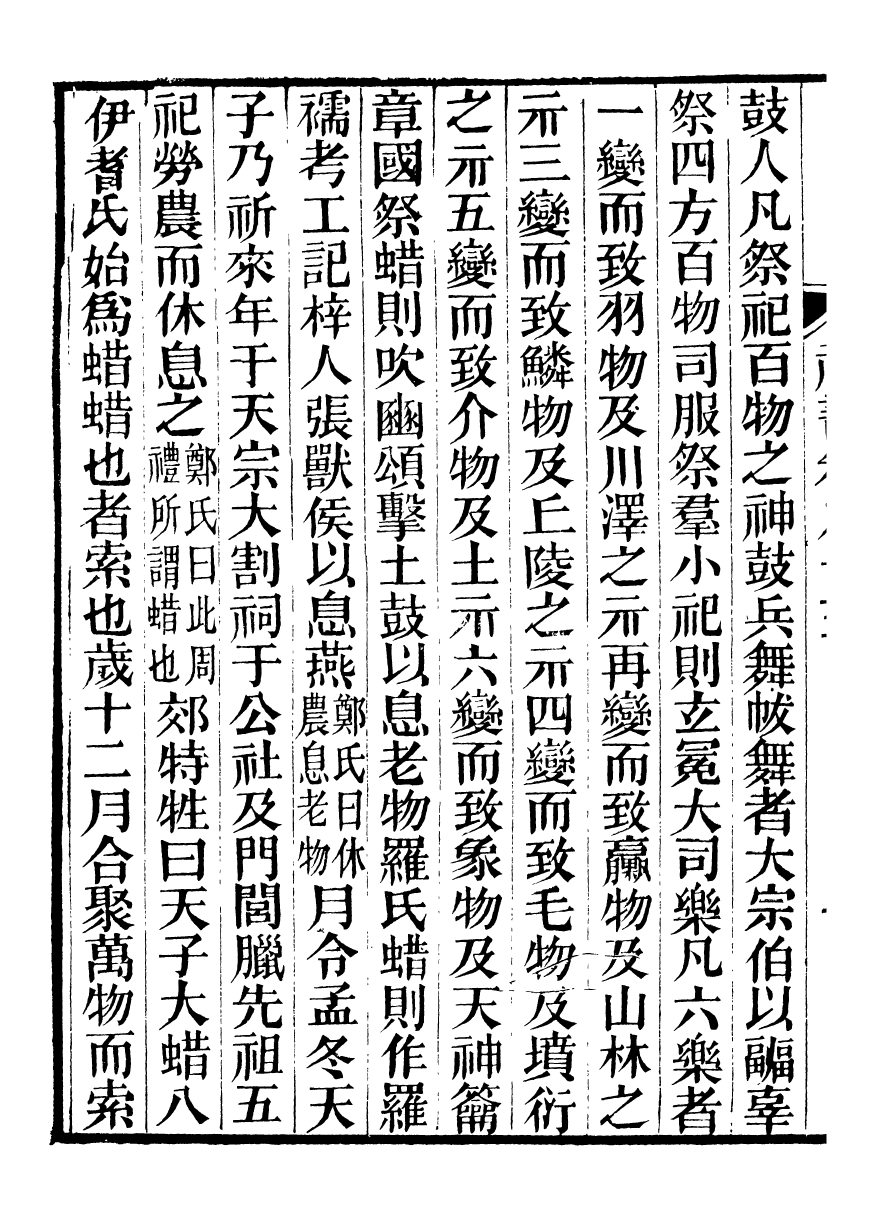 鼓人凡祭祀百物之神鼓兵舞帗舞者大宗伯以疈辜
祭四方百物司服祭羣小祀則玄冕大司樂凡六樂者
一變而致羽物及川澤之示再變而致臝物及山林之
示三變而致鱗物及丘陵之示四變而致毛物及墳衍
之示五變而致介物及土示六變而致象物及天神籥
章國祭蜡則吹豳頌擊土鼓以息老物羅氏蜡則作羅
襦考工記梓人張獸侯以息燕鄭氏曰休農息老物月令孟冬天
子乃祈來年于天宗大割祠于公社及門閭臘先祖五
祀勞農而休息之鄭氏曰此周禮所謂蜡也郊特牲曰天子大蜡八
伊耆氏始爲蜡蜡也者索也歲十二月合聚萬物而索